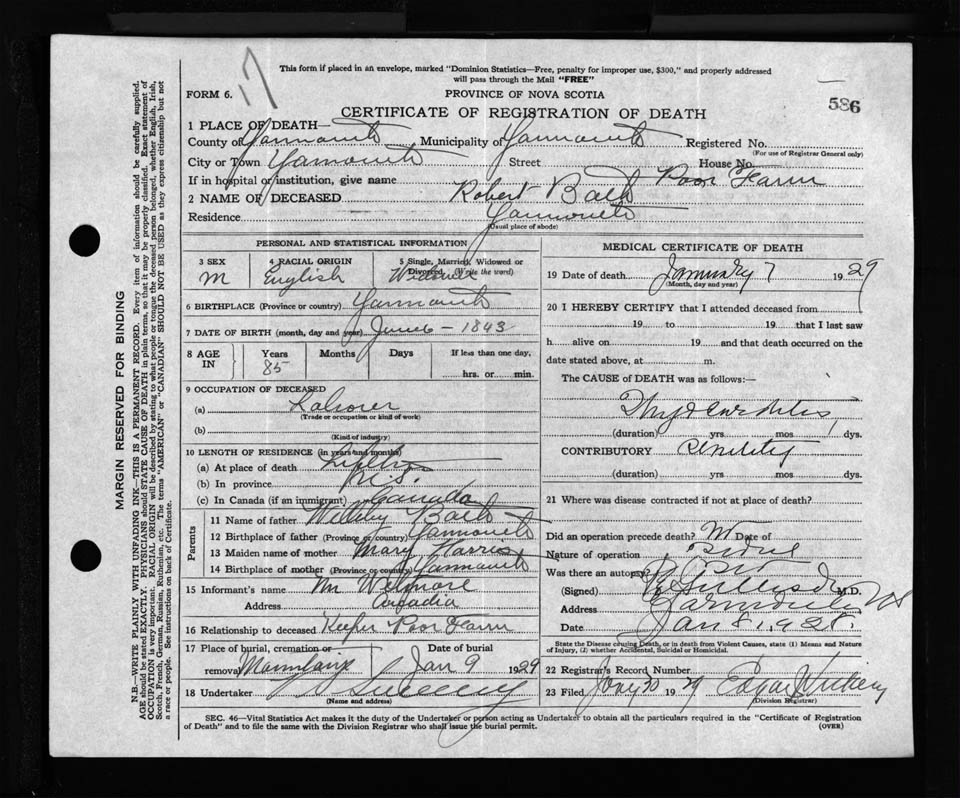 17
This form if placed in an envelope, marked "Dominion Statistics—Free, penalty for improper use, $300," and properly addressed
will pass through the Mail "FREE"
FORM 6. PROVINCE OF NOVA SCOTIA
586
CERTIFICATE OF REGISTRATION OF DEATH
1 PLACE OF DEATH—
County of Yarmouth Municipality of Yarmouth Registered No.
(For use of Registrar General only)
City or Town Yarmouth Street House No.
If in hospital or institution, give name Poor Farm
2 NAME OF DECEASED Robert
Residence Yarmouth
(Usual place of abode)
PERSONAL AND STATISTICAL INFORMATION
3 SEX 4 RACIAL ORIGIN 5 Single, Married, Widowed or
M English Divorced (Write the word)
6 BIRTHPLACE (Province or country) Yarmouth
7 DATE OF BIRTH (month, day and year) 1843
8 AGE IN Years Months Days If less than one day,
85 hrs. or min.
9 OCCUPATION OF DECEASED
(a) Laborer
(Trade or occupation or kind of work)
(b)
(Kind of industry)
10 LENGTH OF RESIDENCE (in years and months)
(a) At place of death
(b) In province N.S.
(c) In Canada (if an immigrant) Canada
Parents
11 Name of father
12 Birthplace of father (Province or country) Yarmouth
13 Maiden name of mother Mary Harris
14 Birthplace of mother (Province or country) Yarmouth
15 Informant's name Wm
Address Arcadia
16 Relationship to deceased Keeper Poor Farm
17 Place of burial, cremation or Date of burial
removal Jan 9 1929
18 Undertaker Sweeny
(Name and address)
MEDICAL CERTIFICATE OF DEATH
19 Date of death January 7 1929
(Month, day and year)
20 I HEREBY CERTIFY that I attended deceased from
19 to 19 that I last saw
h alive on 19 and that death occurred on the
date stated above, at m.
The CAUSE of DEATH was as follows:—
Myocarditis
(duration) yrs mos dys.
CONTRIBUTORY Senility
(duration) yrs. mos. dys.
21 Where was disease contracted if not at place of death?
Did an operation precede death? Date of
Nature of operation
Was there an autopsy?
(Signed) M.D.
Address Yarmouth NS
Date Jan 8 1928.
State the Disease causing Death, or in death from Violent Causes, state (1) Means and Nature
of Injury, (2) whether Accidental, Suicidal or Homicidal.
22 Registrar's Record Number
23 Filed 30 1929 Edgar
(Division Registrar)
SEC. 46—Vital Statistics Act makes it the duty of the Undertaker or person acting as Undertaker to obtain all the particulars required in the "Certificate of Registration
of Death" and to file the same with the Division Registrar who shall issue the burial permit. (OVER)
MARGIN RESERVED FOR BINDING
N.B.—WRITE PLAINLY WITH UNFADING INK—THIS IS A PERMANENT RECORD. Every item of information should be carefully supplied.
AGE should be stated EXACTLY. PHYSICIANS should STATE CAUSE OF DEATH in plain terms so that it may be properly classified. Exact statement of
OCCUPATION is very important. RACIAL ORIGIN will be described by stating to what people or tongue the deceased person belonged, whether English, Irish,
Scotch, French, German, Russian, Ruthenian, etc. The terms "AMERICAN" or "CANADIAN" SHOULD NOT BE USED as they express citizenship but not
a race or people. See instructions on back of Certificate.